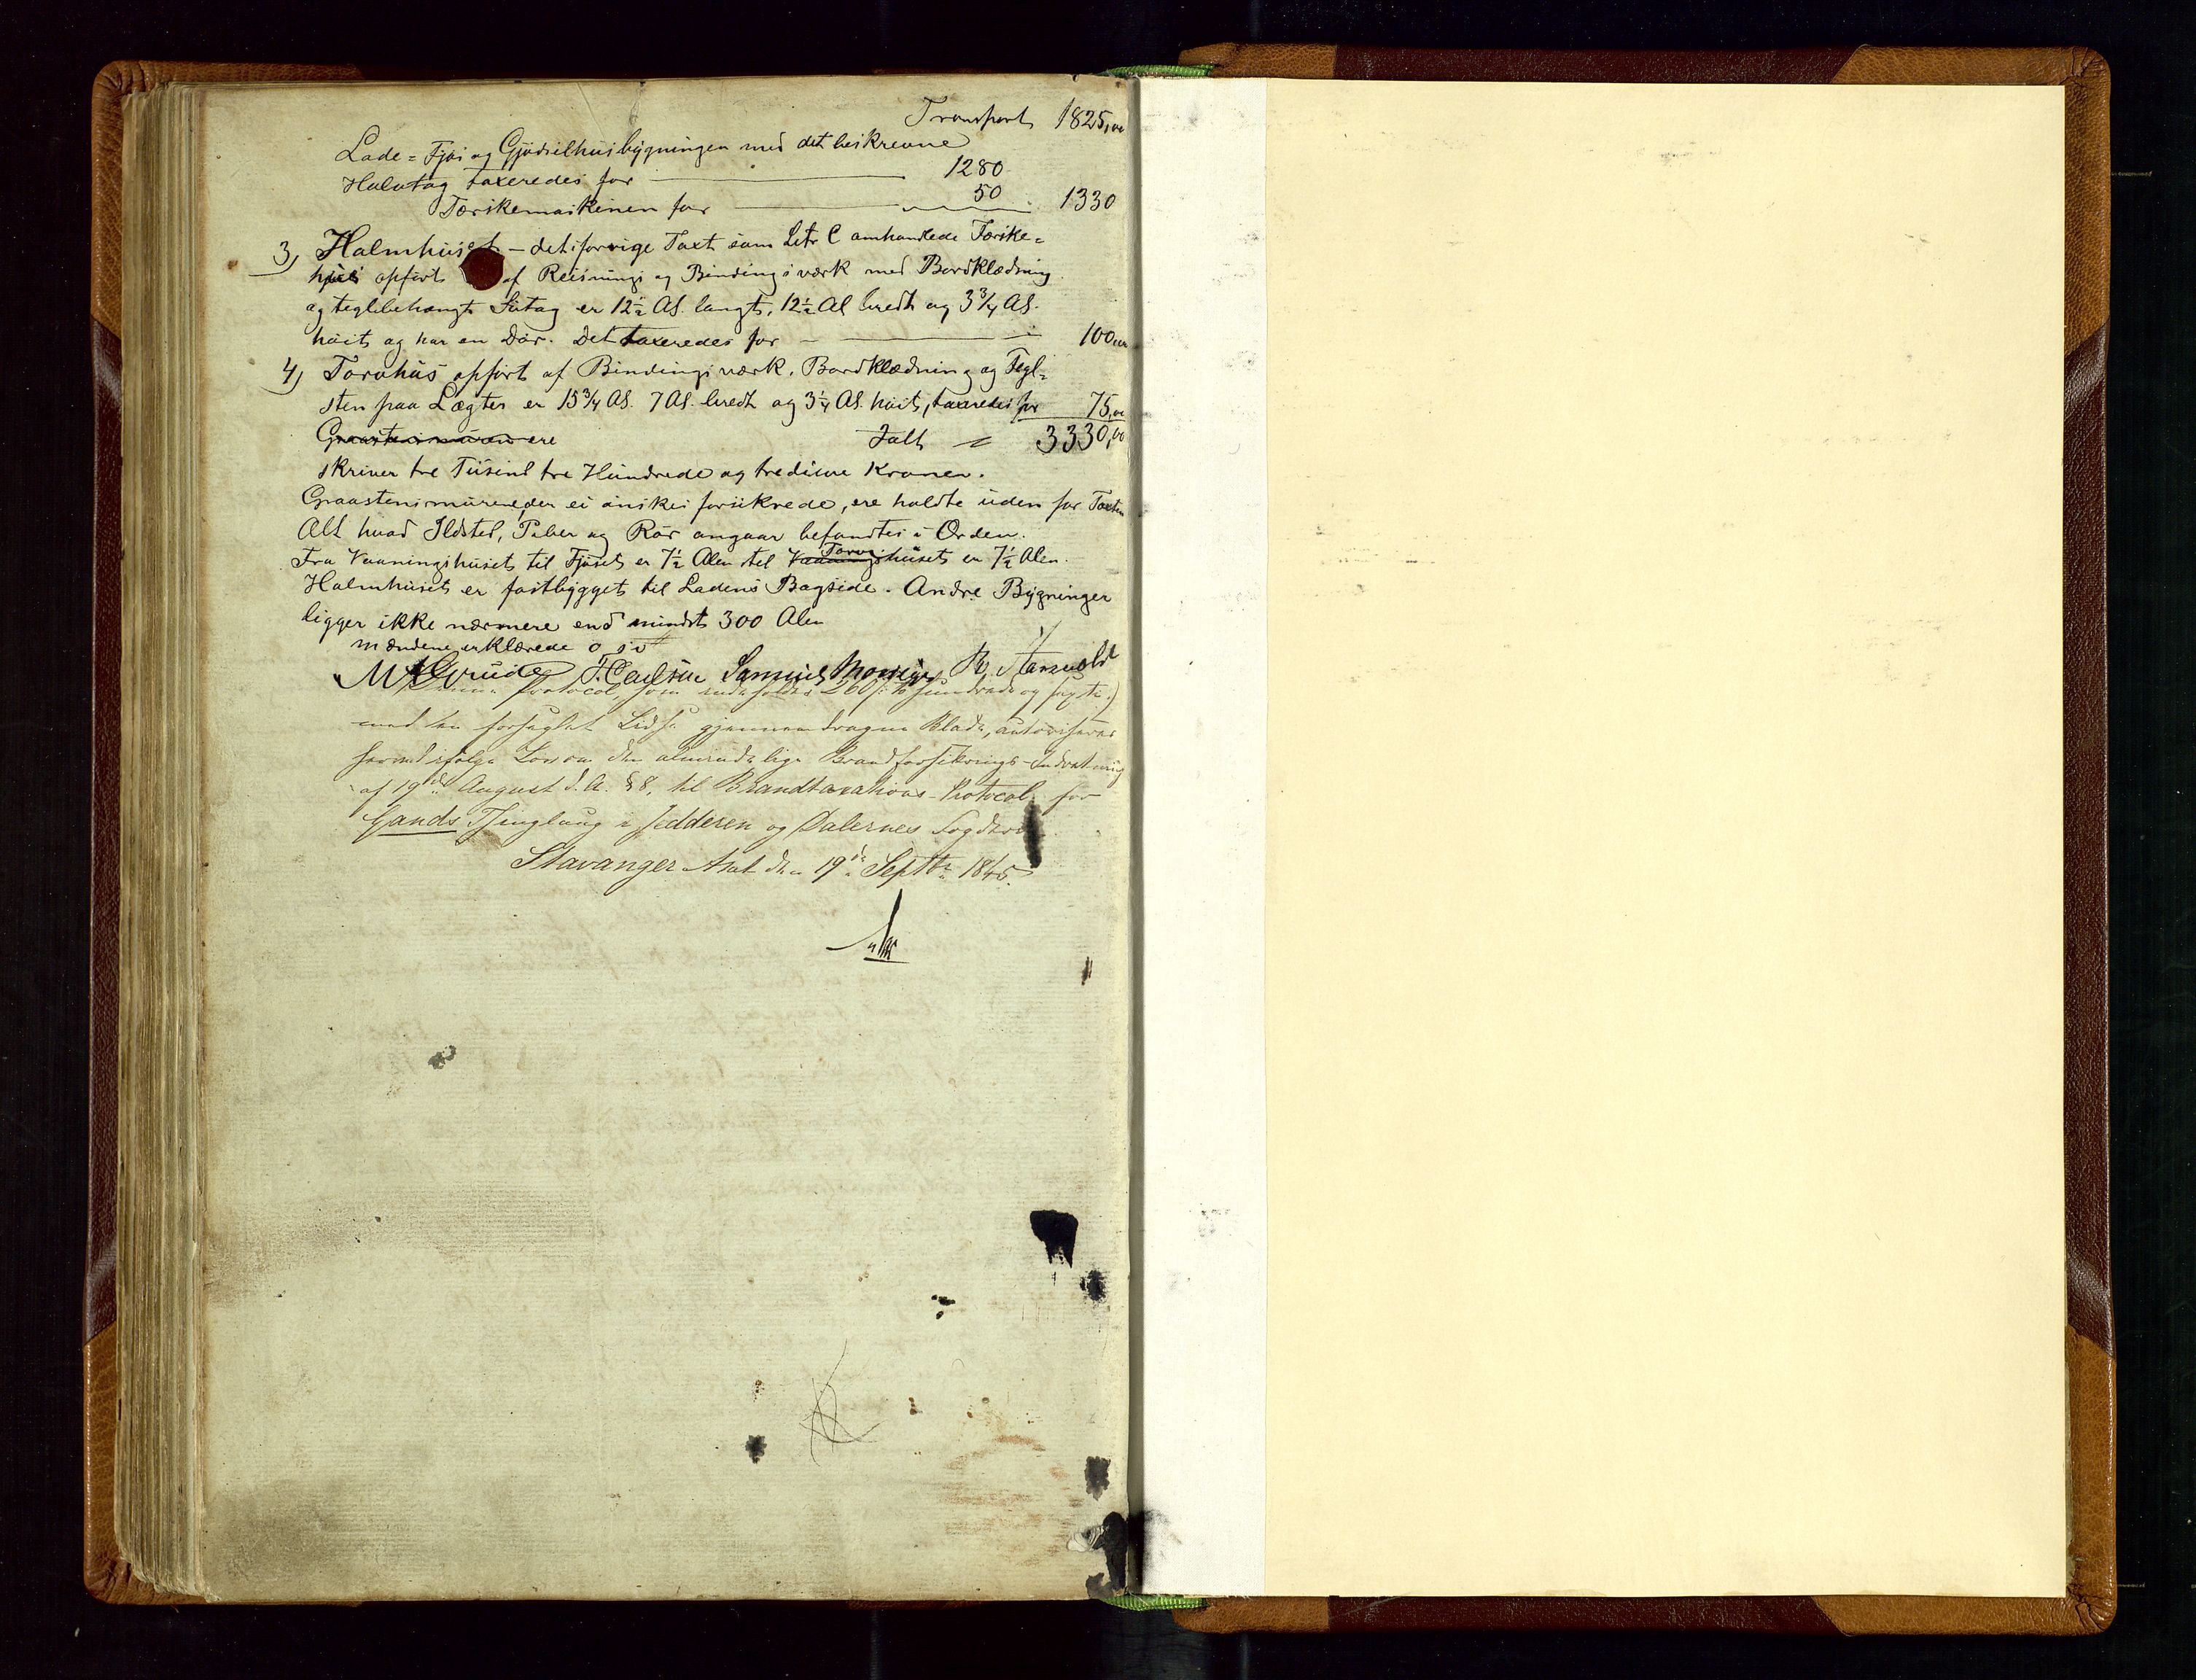 Transport 1825,00
Lade= Fjøs og Gjødselhusbygningen med det beskrevne
Halvtag taxeredes for 1280
Tærskemaskinen for 50 1330
3) Halmhuset – det i forrige Taxt som Litr C omhandlede Tærske=
huus opført af Reisnings og Bindingsværk med Bordklædning
og teglbehængt Sutag er 12½ Al. langt, 12½ Al bredt og 3¾ Al.
høit og har en Dør. Det taxeredes for 100,00
4) Torvhus opført af Bindingsværk, Bordklædning og Tegl=
sten paa Lægter er 15¾ Al. 7 Al. bredt og 3¼ Al. høit, taxeredes for 75,00
Graastensmurene ere Ialt 3330,00
skriver tre Tusind tre Hundrede og tredive Kroner.
Graastensmurene, der ei ønskes forsikrede, ere holdte uden for Taxten
Alt hvad Ildsted, Piber og Rør angaar befandtes i Orden.
Fra Vaaningshuset til Fjøset er 7½ Alen til Vaaningshuset Torv er 7½ Alen.
Halmhuset er fastbygget til Ladens Bagside. Andre Bygninger
ligger ikke nærmere end mindst 300 Alen
Mændene erklærede o s v
M A Grude T. Carlsen Samuel
Denne Protocol, som indeholder 260 /: to hundrede og sexti :/
med en forseglet Lidse gjennemdragne Blade, autoriseres
herved ifølge Lov om den almindelige Brandforsikrings-Indretning
af 19de August d. A. § 8, til Brandtaxations-Protocol for
Gands Thinglaug i Jedderen og Dalernes Fogderi.
Stavanger Amt den 19de Septbr 1845.